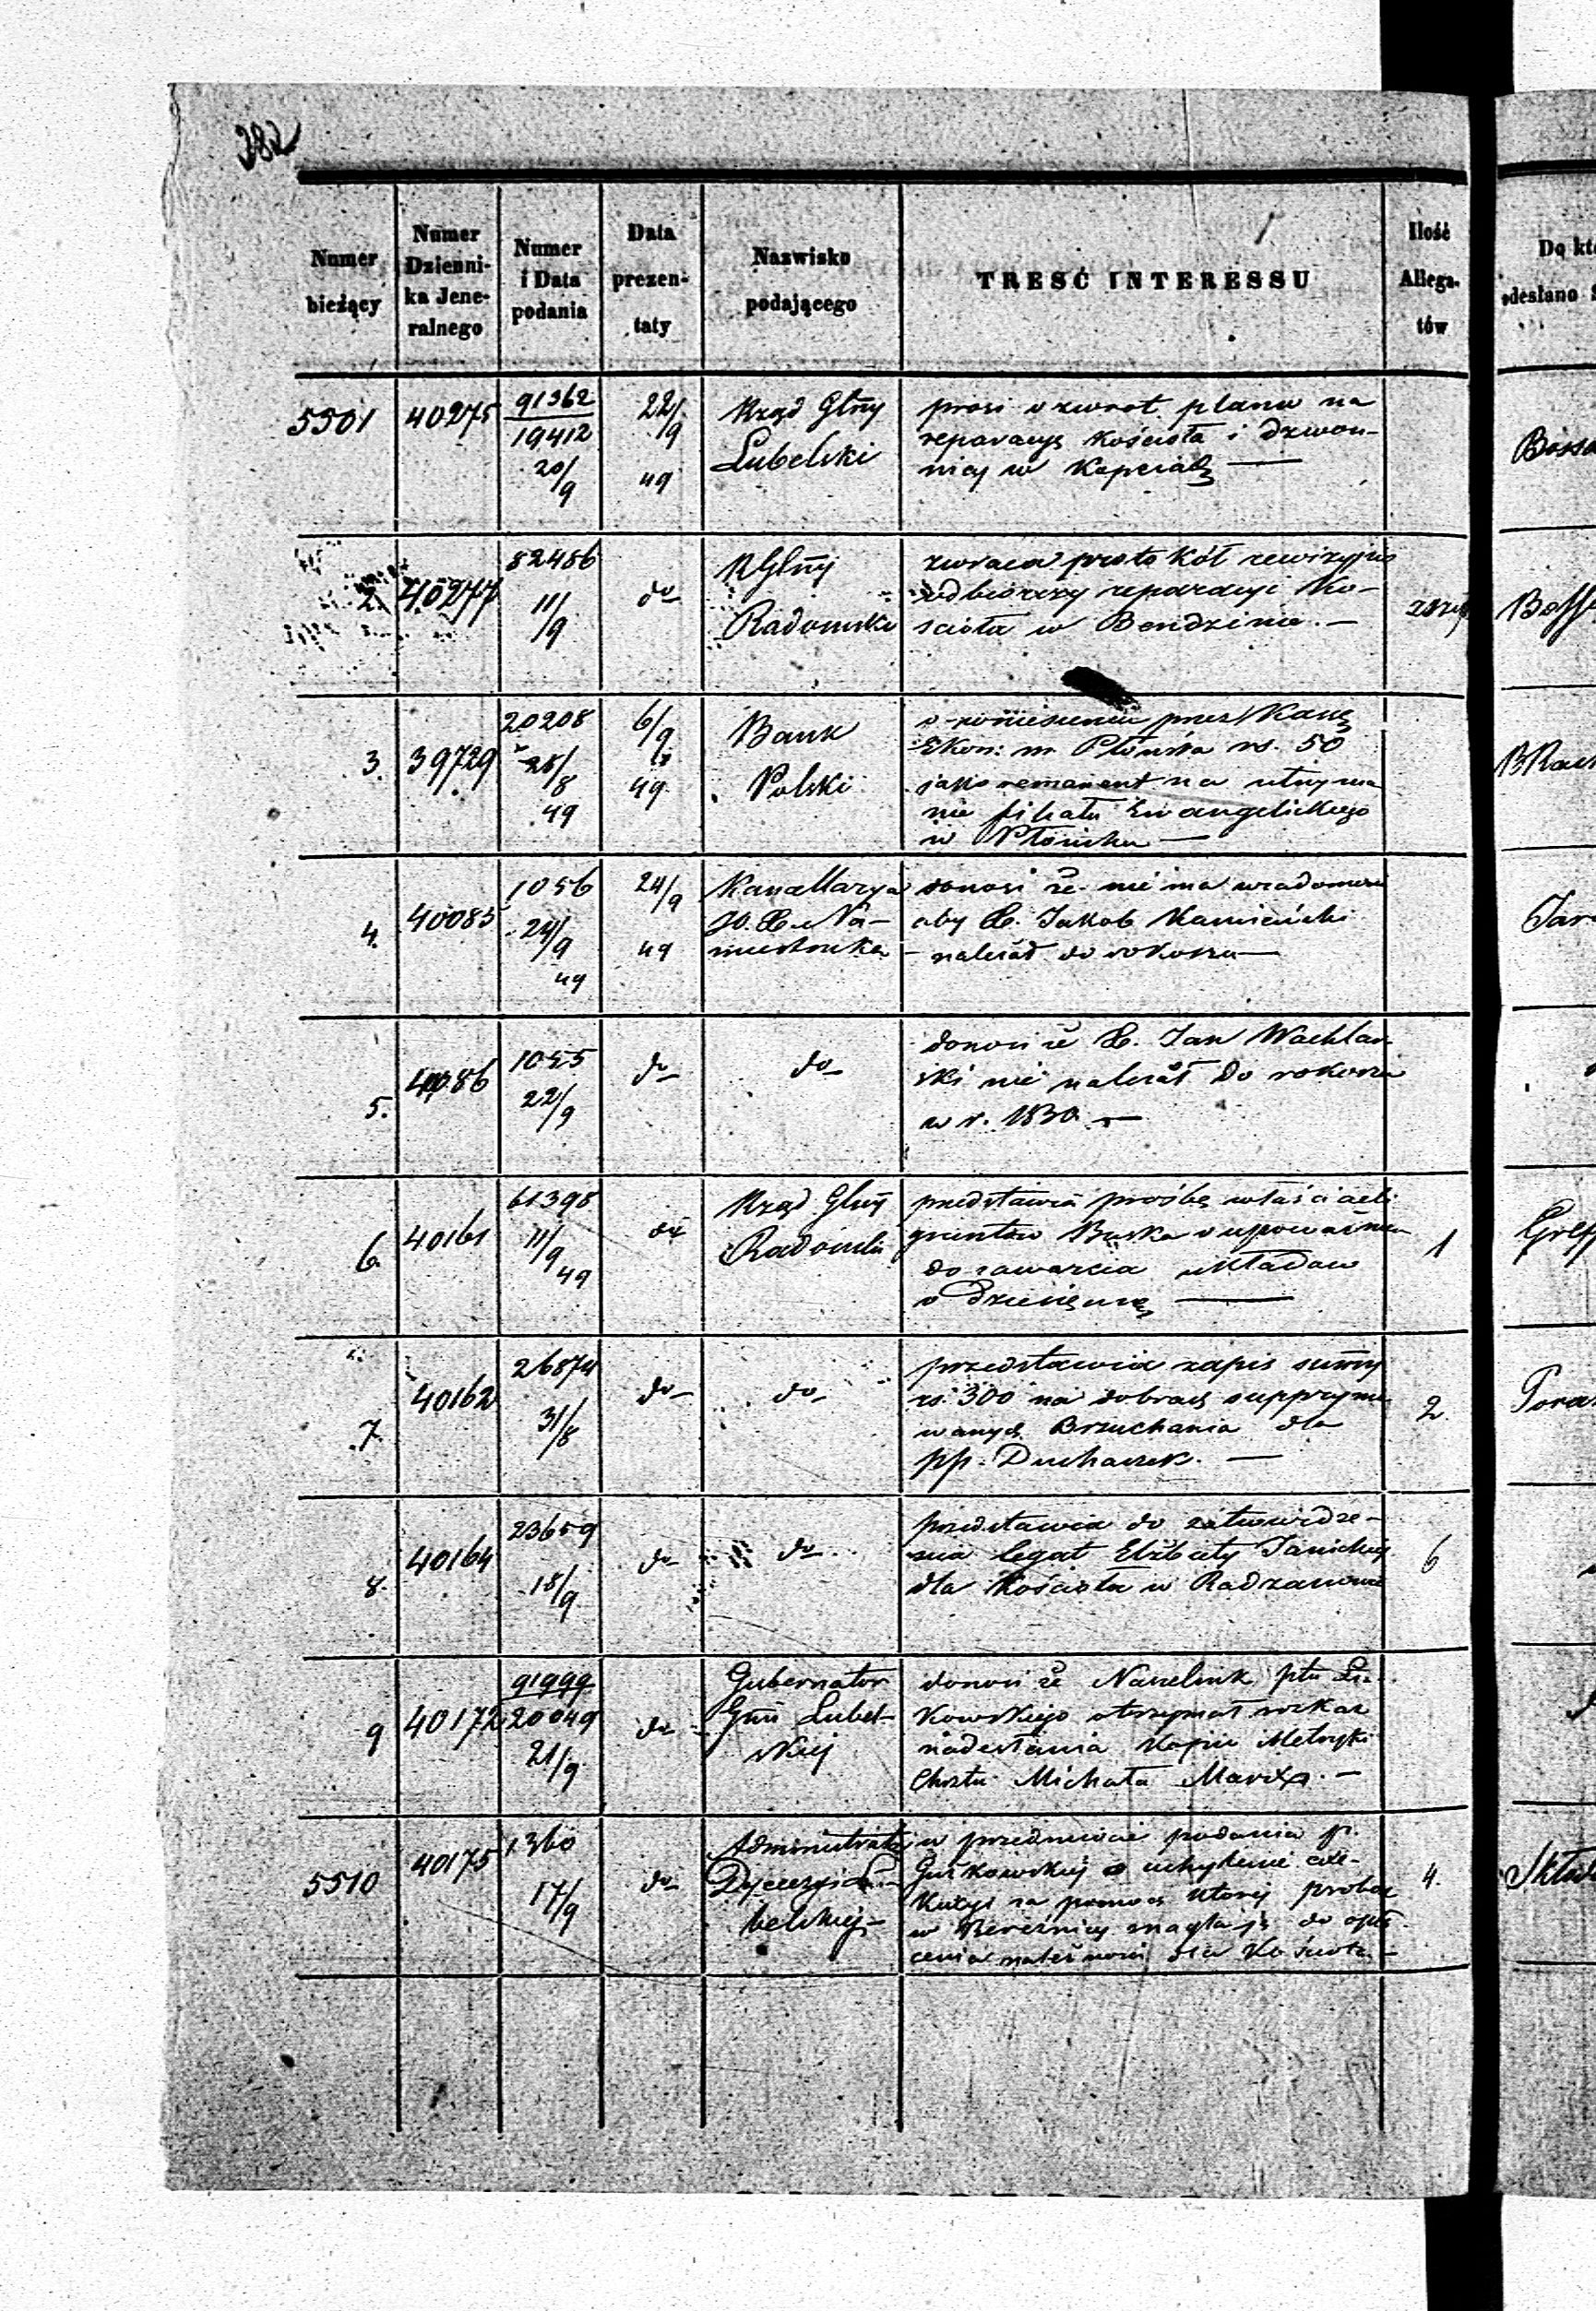 282
Numer bieżący
Numer Dzienni-ka Jene-ralnego
Numer i Data podania
Data prezen-taty
Nazwisko podającego
TREŚĆ INTERESSU
Ilość Allega-tów
Do
odesłano
5501 40275 91362/19412 20/9 22/9 49 Rząd Glny Lubelski
prosi o zwrot planu na
reparacyę Kościoła i dzwon-
nicy w
2. 40277 82486 11/9 do R Glny Radomski
zwraca protokół
odbiorczy reparacyi Ko-
ścioła w Bendzinie. —
3. 39729 20208 28/8 49 6/9 49 Bank Polski
o wniesieniu przez Kassę
Ekon: m. Płońska rs. 50
jako remanent na utrzyma
nie filiału Ewangelickiego
w Płońsku —
4. 40085 1056 24/9 49 24/9 49 Kancellarya JO. X. Na-miestnika
donosi że nie ma wiadomości
aby X. Jakób Kamieński
należał do rokoszu —
5. 4086 1055 22/9 do do
donosi że X. Jan Wachlar-
ski nie należał do rokoszu
w r. 1830. —
6. 40161 61398 11/9 49 do Rząd Glny Radomski
przedstawia prośbę właścicieli
gruntów Buska o upoważnien
do zawarcia układów
o dziesięcinę — 1
7. 40162 26874 31/8 do do
przedstawia zapis summy
rs. 300 na dobrach supprymo
wanych Brzuchania dla
pp. Duchaczek. — 2.
8. 40164 23659 18/9 do do
przedstawia do zatwierdze-
nia legat Elżbiety Janickiej
dla Kościoła w Radzanowie 6
9 40172 91999/20049 21/9 do Gubernator Gnii Lubel-skiej
donosi że Naczelnik ptu Łu-
kowskiego otrzymał rozkaz
nadesłania kopii Metryki
Chrztu Michała —
5510 40175 1360 17/9 do Administrator Dyecezyi Lu-belskiej —
w przedmiocie podania p.
Gutkowskiej o uchylenie exe-
kucyi za pomocą której probosz
w ją do opła-
cenia należności dla Kościoła — 4.